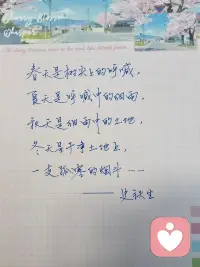 Cherry Blossom
Whispers
春天是树尖上的呼喊，
夏天是呼喊中的细雨，
秋天是细雨中的土地，
冬天是干净土地上，
一支孤零的烟斗……
——史铁生